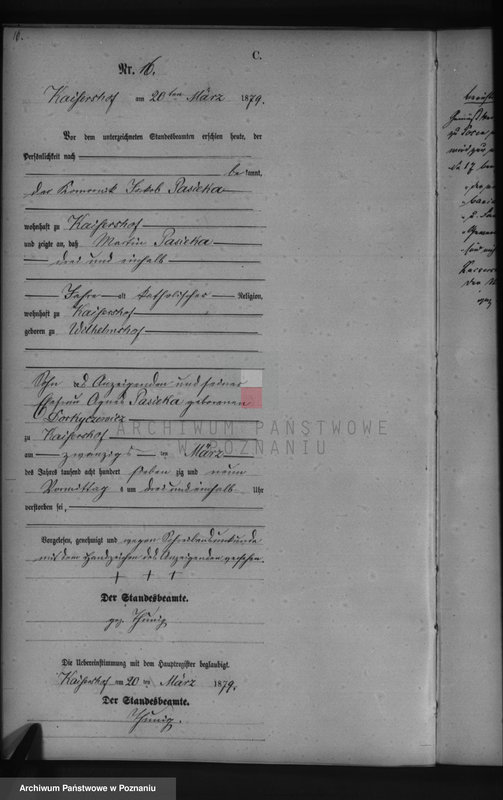 16.
C.
Nr. 16.
Kaisershof am 20 ten März 1879.
Vor dem unterzeichneten Standesbeamten erschien heute, der
Persönlichkeit nach
be kannt,
der Komornik Jakob Pasicka
wohnhaft zu Kaisershof
und zeigte an, daß Martin Pasicka
drei und einhalb
Jahre alt katholischer Religion,
wohnhaft zu Kaisershof
geboren zu Wilhelmshof
Sohn des Anzeigenden und seiner
Ehefrau Agnes Pasicka geborenen
zu Kaisershof
am zwanzigs ten März
des Jahres tausend acht hundert sieben zig und neun
Vormittag s um drei und einhalb Uhr
verstorben sei,
Vorgelesen, genehmigt und wegen Schreibensunkunde
mit dem Handzeichen des Anzeigenden versehen.
+ + +
Der Standesbeamte.
gez. Thunig
Die Uebereinstimmung mit dem Hauptregister beglaubigt.
Kaisershof am 20 ten März 1879.
Der Standesbeamte.
Thunig.
ARCHIWUM PAŃSTWOWE
W POZNANIU
Archiwum Państwowe w Poznaniu